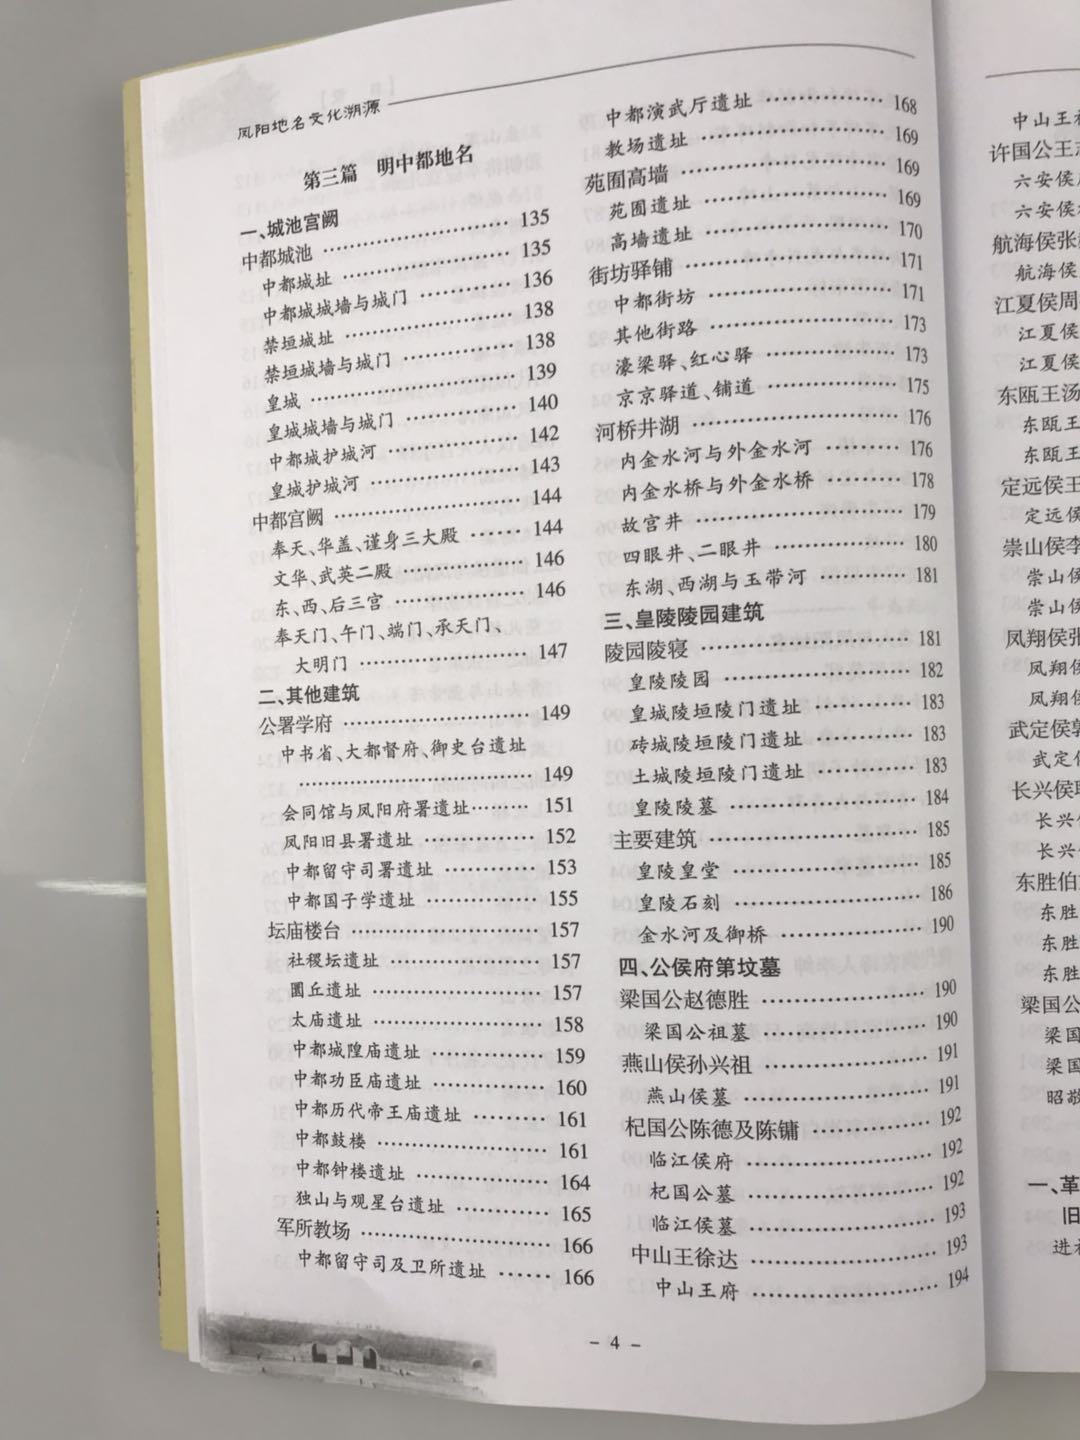 凤阳地名文化溯源
第三篇 明中都地名
一、城池宫阙
中都城池 …… 135
中都城址 …… 135
中都城城墙与城门 …… 136
禁垣城址 …… 138
禁垣城墙与城门 …… 138
皇城 …… 139
皇城城墙与城门 …… 140
中都城护城河 …… 142
皇城护城河 …… 143
中都宫阙 …… 144
奉天、华盖、谨身三大殿 …… 144
文华、武英二殿 …… 146
东、西、后三宫 …… 146
奉天门、午门、端门、承天门、
大明门 …… 147
二、其他建筑
公署学府 …… 149
中书省、大都督府、御史台遗址
…… 149
会同馆与凤阳府署遗址 …… 151
凤阳旧县署遗址 …… 152
中都留守司署遗址 …… 153
中都国子学遗址 …… 155
坛庙楼台 …… 157
社稷坛遗址 …… 157
圜丘遗址 …… 157
太庙遗址 …… 158
中都城隍庙遗址 …… 159
中都功臣庙遗址 …… 160
中都历代帝王庙遗址 …… 161
中都鼓楼 …… 161
中都钟楼遗址 …… 164
独山与观星台遗址 …… 165
军所教场 …… 166
中都留守司及卫所遗址 …… 166
中都演武厅遗址 …… 168
教场遗址 …… 169
苑囿高墙 …… 169
苑囿遗址 …… 169
高墙遗址 …… 170
街坊驿铺 …… 171
中都街坊 …… 171
其他街路 …… 173
濠梁驿、红心驿 …… 173
京京驿道、铺道 …… 175
河桥井湖 …… 176
内金水河与外金水河 …… 176
内金水桥与外金水桥 …… 178
故宫井 …… 179
四眼井、二眼井 …… 180
东湖、西湖与玉带河 …… 181
三、皇陵陵园建筑
陵园陵寝 …… 181
皇陵陵园 …… 182
皇城陵垣陵门遗址 …… 183
砖城陵垣陵门遗址 …… 183
土城陵垣陵门遗址 …… 183
皇陵陵墓 …… 184
主要建筑 …… 185
皇陵皇堂 …… 185
皇陵石刻 …… 186
金水河及御桥 …… 190
四、公侯府第坟墓
梁国公赵德胜 …… 190
梁国公祖墓 …… 190
燕山侯孙兴祖 …… 191
燕山侯墓 …… 191
杞国公陈德及陈镛 …… 192
临江侯府 …… 192
杞国公墓 …… 192
临江侯墓 …… 193
中山王徐达 …… 193
中山王府 …… 194
- 4 -
中山王
许国公王
六安侯
六安侯
航海侯张
航海侯
江夏侯周
江夏侯
江夏侯
东瓯王汤
东瓯王
东瓯王
定远侯王
定远侯
崇山侯李
崇山侯
崇山侯
凤翔侯张
凤翔侯
凤翔侯
武定侯郭
武定侯
长兴侯耿
长兴侯
长兴侯
东胜伯
东胜
东胜
东胜
梁国公
梁国
梁国
昭敬
一、革
旧
进